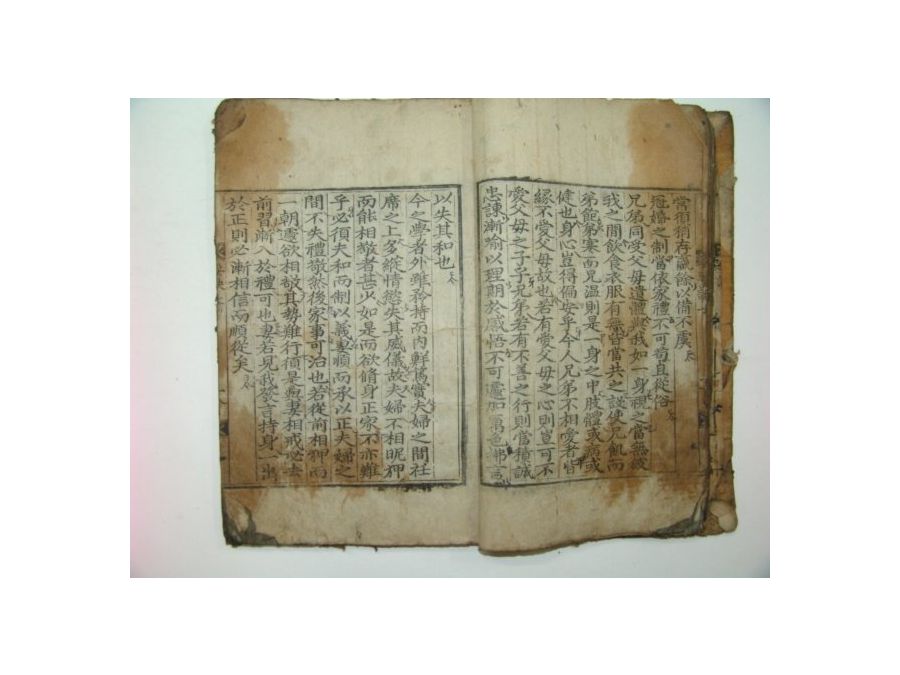 常須稍存贏餘以備不虞
冠婚之制當依家禮不可苟且從俗
兄弟同受父母遺體與我如一身視之當無彼
我之間飮食衣服有無皆當共之設使兄飢而
弟飽弟寒而兄溫則是一身之中肢體或病或
健也身心豈得偏安乎今人兄弟不相愛者皆
緣不愛父母故也若有愛父母之心則豈可不
愛父母之子乎兄弟若有不善之行則當積誠
忠諫漸喻以理期於感悟不可遽加厲色拂言
以失其和也
今之學者外雖矜持而內鮮篤實夫婦之間衽
席之上多縱情慾失其威儀故夫婦不相昵狎
而能相敬者甚少如是而欲脩身正家不亦難
乎必須夫和而制以義妻順而承以正夫婦之
間不失禮敬然後家事可治也若從前相狎而
一朝遽欲相敬其勢難行須是與妻相戒必去
前習漸入於禮可也妻若見我發言持身一出
於正則必漸相信而順從矣